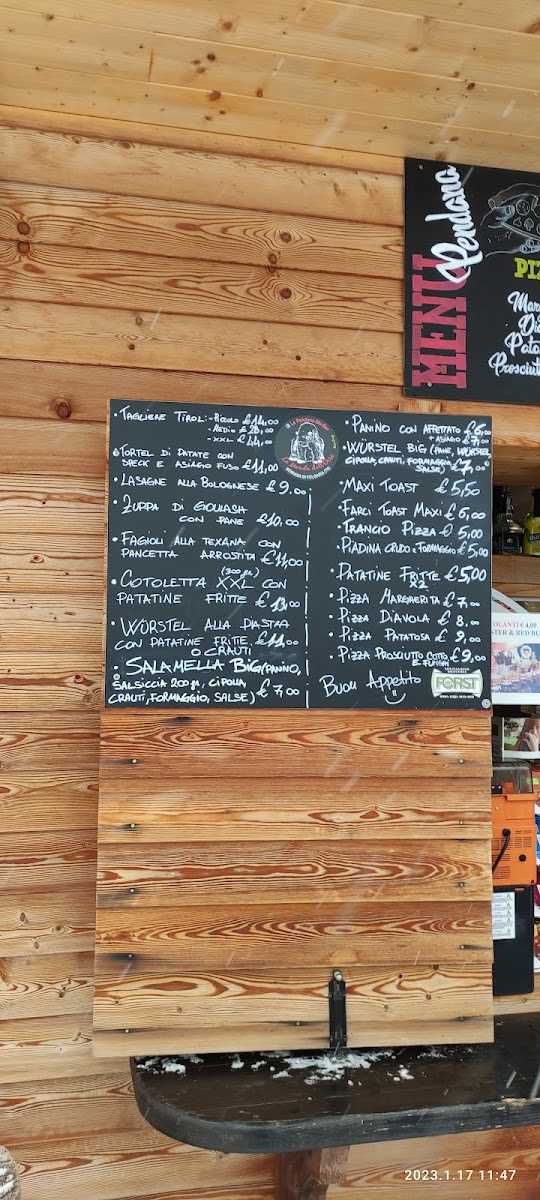 MENU
Pendana
PIZ
Mar
Dia
Pata
Prosciut
• TAGLIERE TIROL: - PICCOLO € 14,00
- MEDIO € 28,00
- XXL € 44,00
• TORTEL DI PATATE CON
SPECK E ASIAGO FUSO € 11,00
• LASAGNE ALLA BOLOGNESE € 9,00
• ZUPPA DI GOULASH
CON PANE € 10,00
• FAGIOLI ALLA TEXANA CON
PANCETTA ARROSTITA € 11,00
(300 gr)
• COTOLETTA XXL CON
PATATINE FRITTE € 13,00
• WÜRSTEL ALLA PIASTRA
CON PATATINE FRITTE € 11,00
O CRAUTI
• SALAMELLA BIG (PANINO,
SALSICCIA 200 gr, CIPOLLA,
CRAUTI, FORMAGGIO, SALSE) € 7,00
• PANINO CON AFFETTATO € 6,00
+ ASIAGO € 7,00
• WÜRSTEL BIG (PANE, WÜRSTEL
CIPOLLA, CRAUTI, FORMAGGIO,
SALSE) € 7,00
• MAXI TOAST € 5,50
• FARCI TOAST MAXI € 6,00
• TRANCIO PIZZA € 5,00
• PIADINA CRUDO E FORMAGGIO € 5,00
• PATATINE FRITTE € 5,00
XL
• PIZZA MARGHERITA € 7,00
• PIZZA DIAVOLA € 8,00
• PIZZA PATATOSA € 9,00
• PIZZA PROSCIUTTO COTTO € 9,00
E FUNGHI
Buon Appetito
FORST
OLANTI € 4,00
STER & RED BU
2023.1.17 11:47